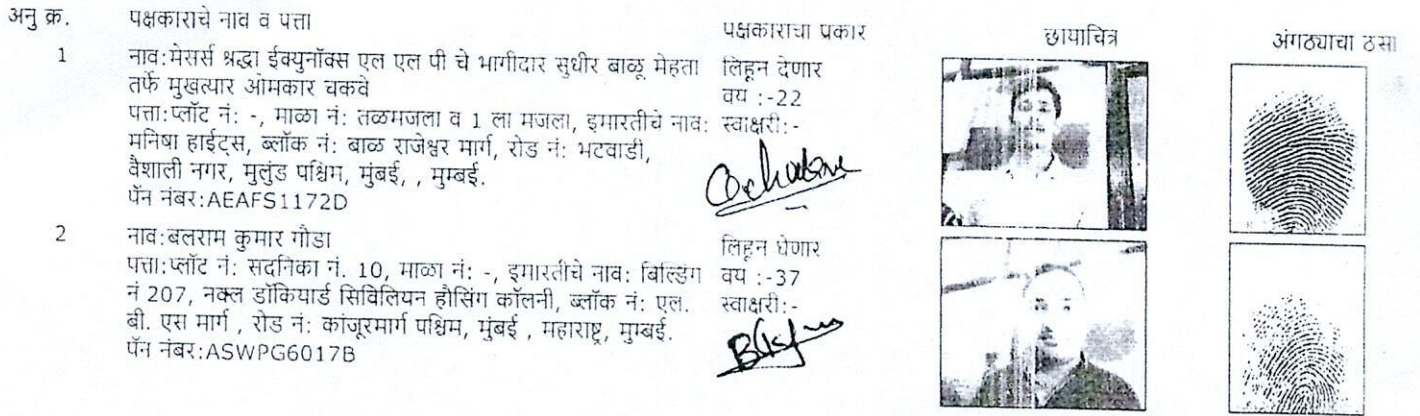 अनु क्र. पक्षकाराचे नाव व पत्ता पक्षकाराचा प्रकार छायाचित्र अंगठ्याचा ठसा
1 नाव:मेसर्स श्रद्धा ईक्युनॉक्स एल एल पी चे भागीदार सुधीर बाळू मेहता लिहून देणार
तर्फे मुखत्यार ओमकार चकवे वय :-22
पत्ता:प्लॉट नं: -, माळा नं: तळमजला व 1 ला मजला, इमारतीचे नाव: स्वाक्षरी:-
मनिषा हाईट्स, ब्लॉक नं: बाळ राजेश्वर मार्ग, रोड नं: भटवाडी,
वैशाली नगर, मुलुंड पश्चिम, मुंबई, , मुम्बई.
पॅन नंबर:AEAFS1172D
2 नाव:बलराम कुमार गौडा लिहून घेणार
पत्ता:प्लॉट नं: सदनिका नं. 10, माळा नं: -, इमारतीचे नाव: बिल्डिंग वय :-37
नं 207, नव्ल डॉकियार्ड सिविलियन हौसिंग कॉलनी, ब्लॉक नं: एल. स्वाक्षरी:-
बी. एस मार्ग , रोड नं: कांजूरमार्ग पश्चिम, मुंबई , महाराष्ट्र, मुम्बई.
पॅन नंबर:ASWPG6017B